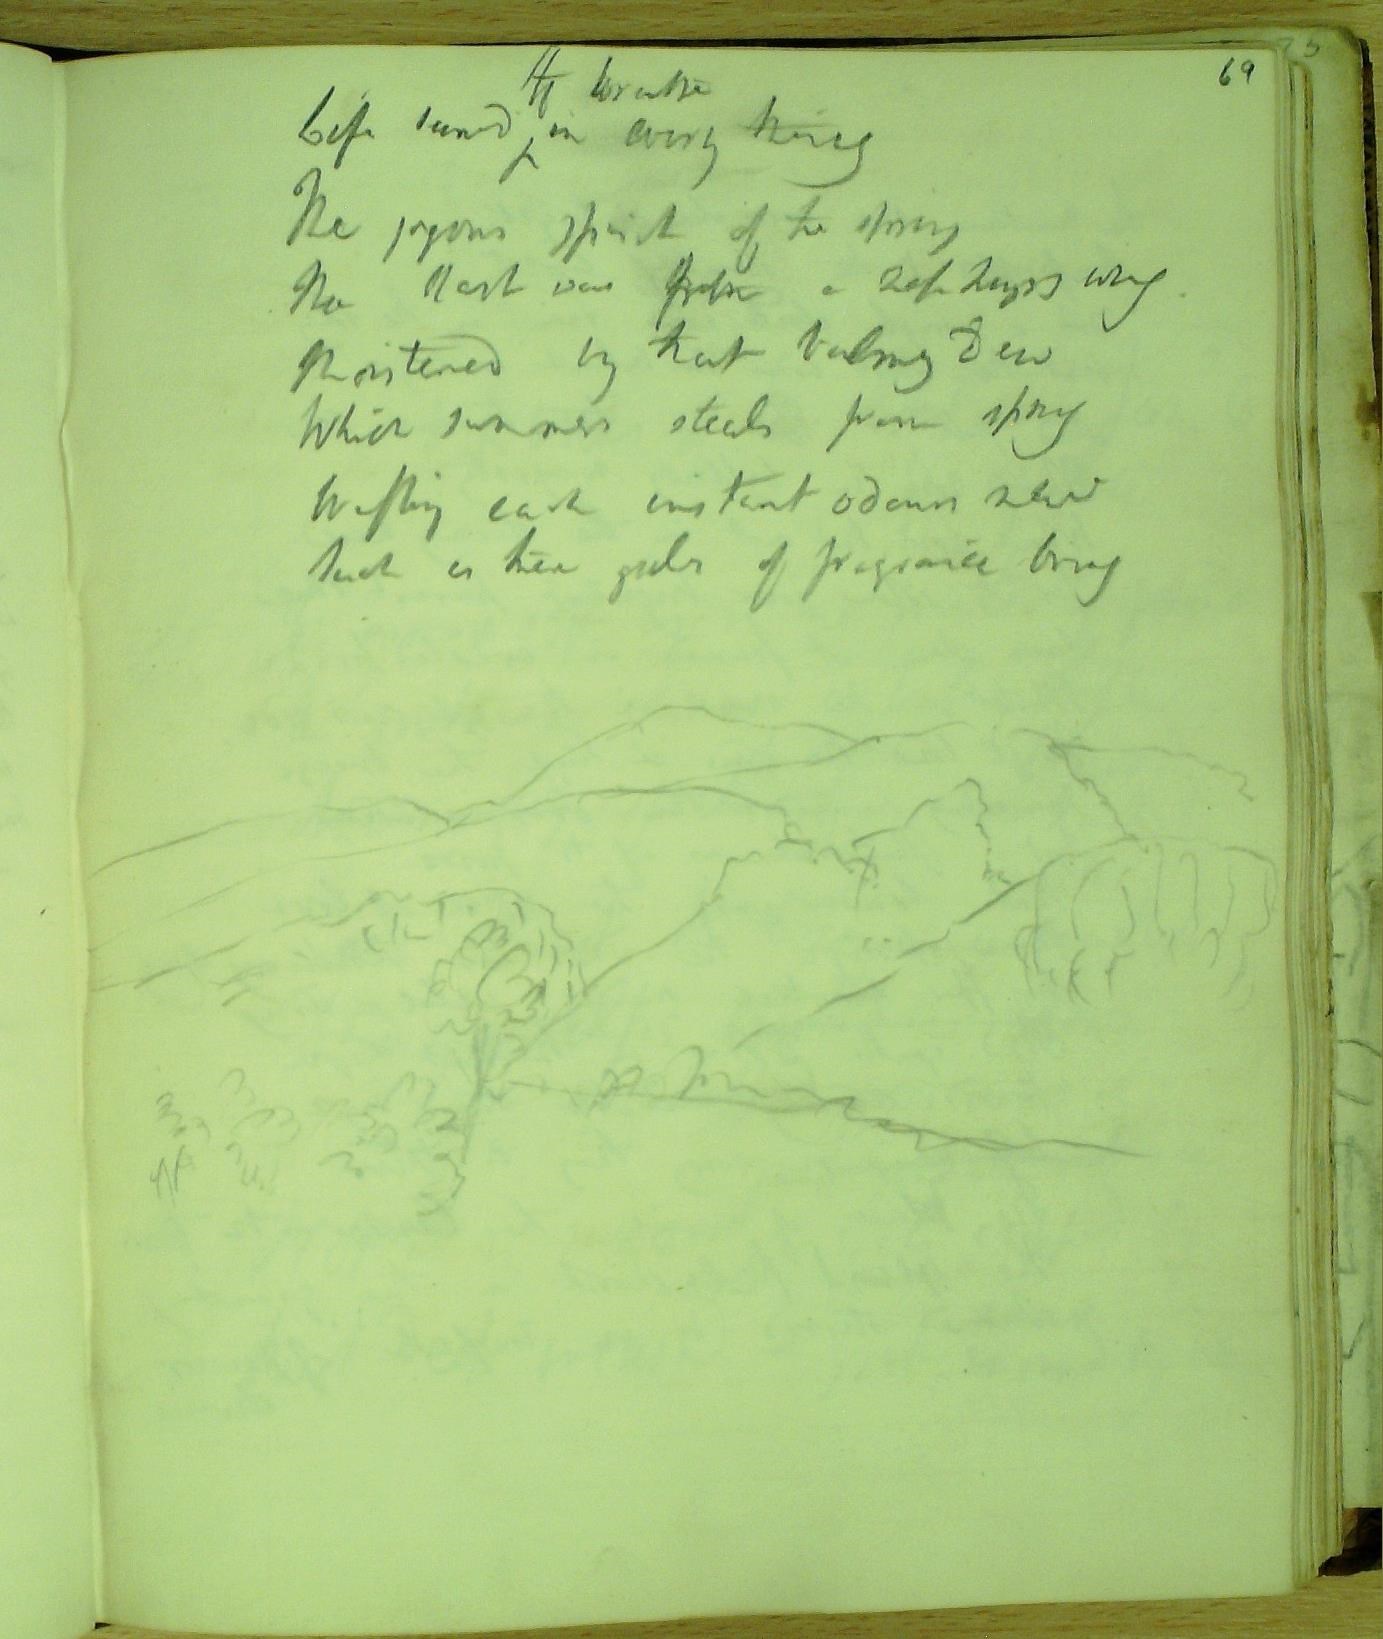 69
to breathe
Life seemed in every thing
The joyous spirit of the spring
The blast was a zephyrs wing
Moistened by that balmy dew
Which summer steals from spring
Wafting each instant odours new
Such as thine gales of fragrance bring